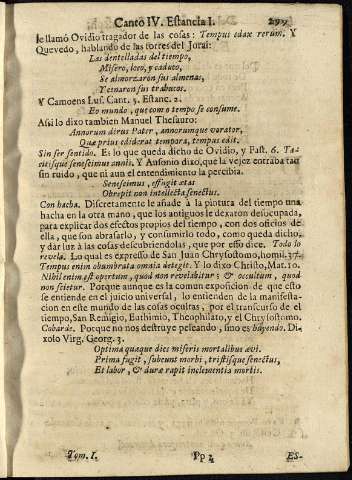 Canto IV. Estancia I. 299
le llamò Ovidio tragador de las cosas: Tempus edax rerum. Y
Quevedo, hablando de las torres del Joray:
Las dentelladas del tiempo,
Misero, loco, y caduco,
Se almorzaron sus almenas,
Y cenaron sus trabucos.
Y Camoens Lus. Cant. 5. Estanc. 2.
Eo mundo, que com o tempo se consume.
Assi lo dixo tambien Manuel Thesauro:
Annorum dirus Pater, annorumque vorator,
Quæ prius ediderat tempora, tempus edit.
Sin ser sentido. Es lo que queda dicho de Ovidio, y Fast. 6. Ta-
citisque senescimus annis. Y Ausonio dixo, que la vejez entraba tan
sin ruido, que ni aun el entendimiento la percibia.
Senescimus, effugit ætas
Obrepit non intellecta senectus.
Con hacha. Discretamente le añade à la pintura del tiempo una
hacha en la otra mano, que los antiguos le dexaron desocupada,
para explicar dos efectos propios del tiempo, con dos oficios de
ella, que son abrasarlo, y consumirlo todo, como queda dicho,
y dar luz à las cosas descubriendolas, que por esso dice. Todo lo
revela. Lo qual es expresso de San Juan Chrysostomo, homil. 37.
Tempus enim obumbrata omnia detegit. Y lo dixo Christo, Mat. 10.
Nihil enim est opertum, quod non revelabitur & occultum, quod
non scietur. Porque aunque es la comun exposicion de que esto
se entiende en el juicio universal, lo entienden de la manifesta-
cion en este mundo de las cosas ocultas, por el transcurso de el
tiempo, San Remigio, Euthimio, Theophilato, y el Chrysostomo.
Cobarde. Porque no nos destruye peleando, sino es huyendo. Di-
xolo Virg. Georg. 3.
Optima quæque dies miseris mortalibus ævi.
Prima fugit, subeunt morbi, tristisque senectus,
Et labor, & duræ rapit inclementia mortis.
Tom. I. Pp 2 ES-